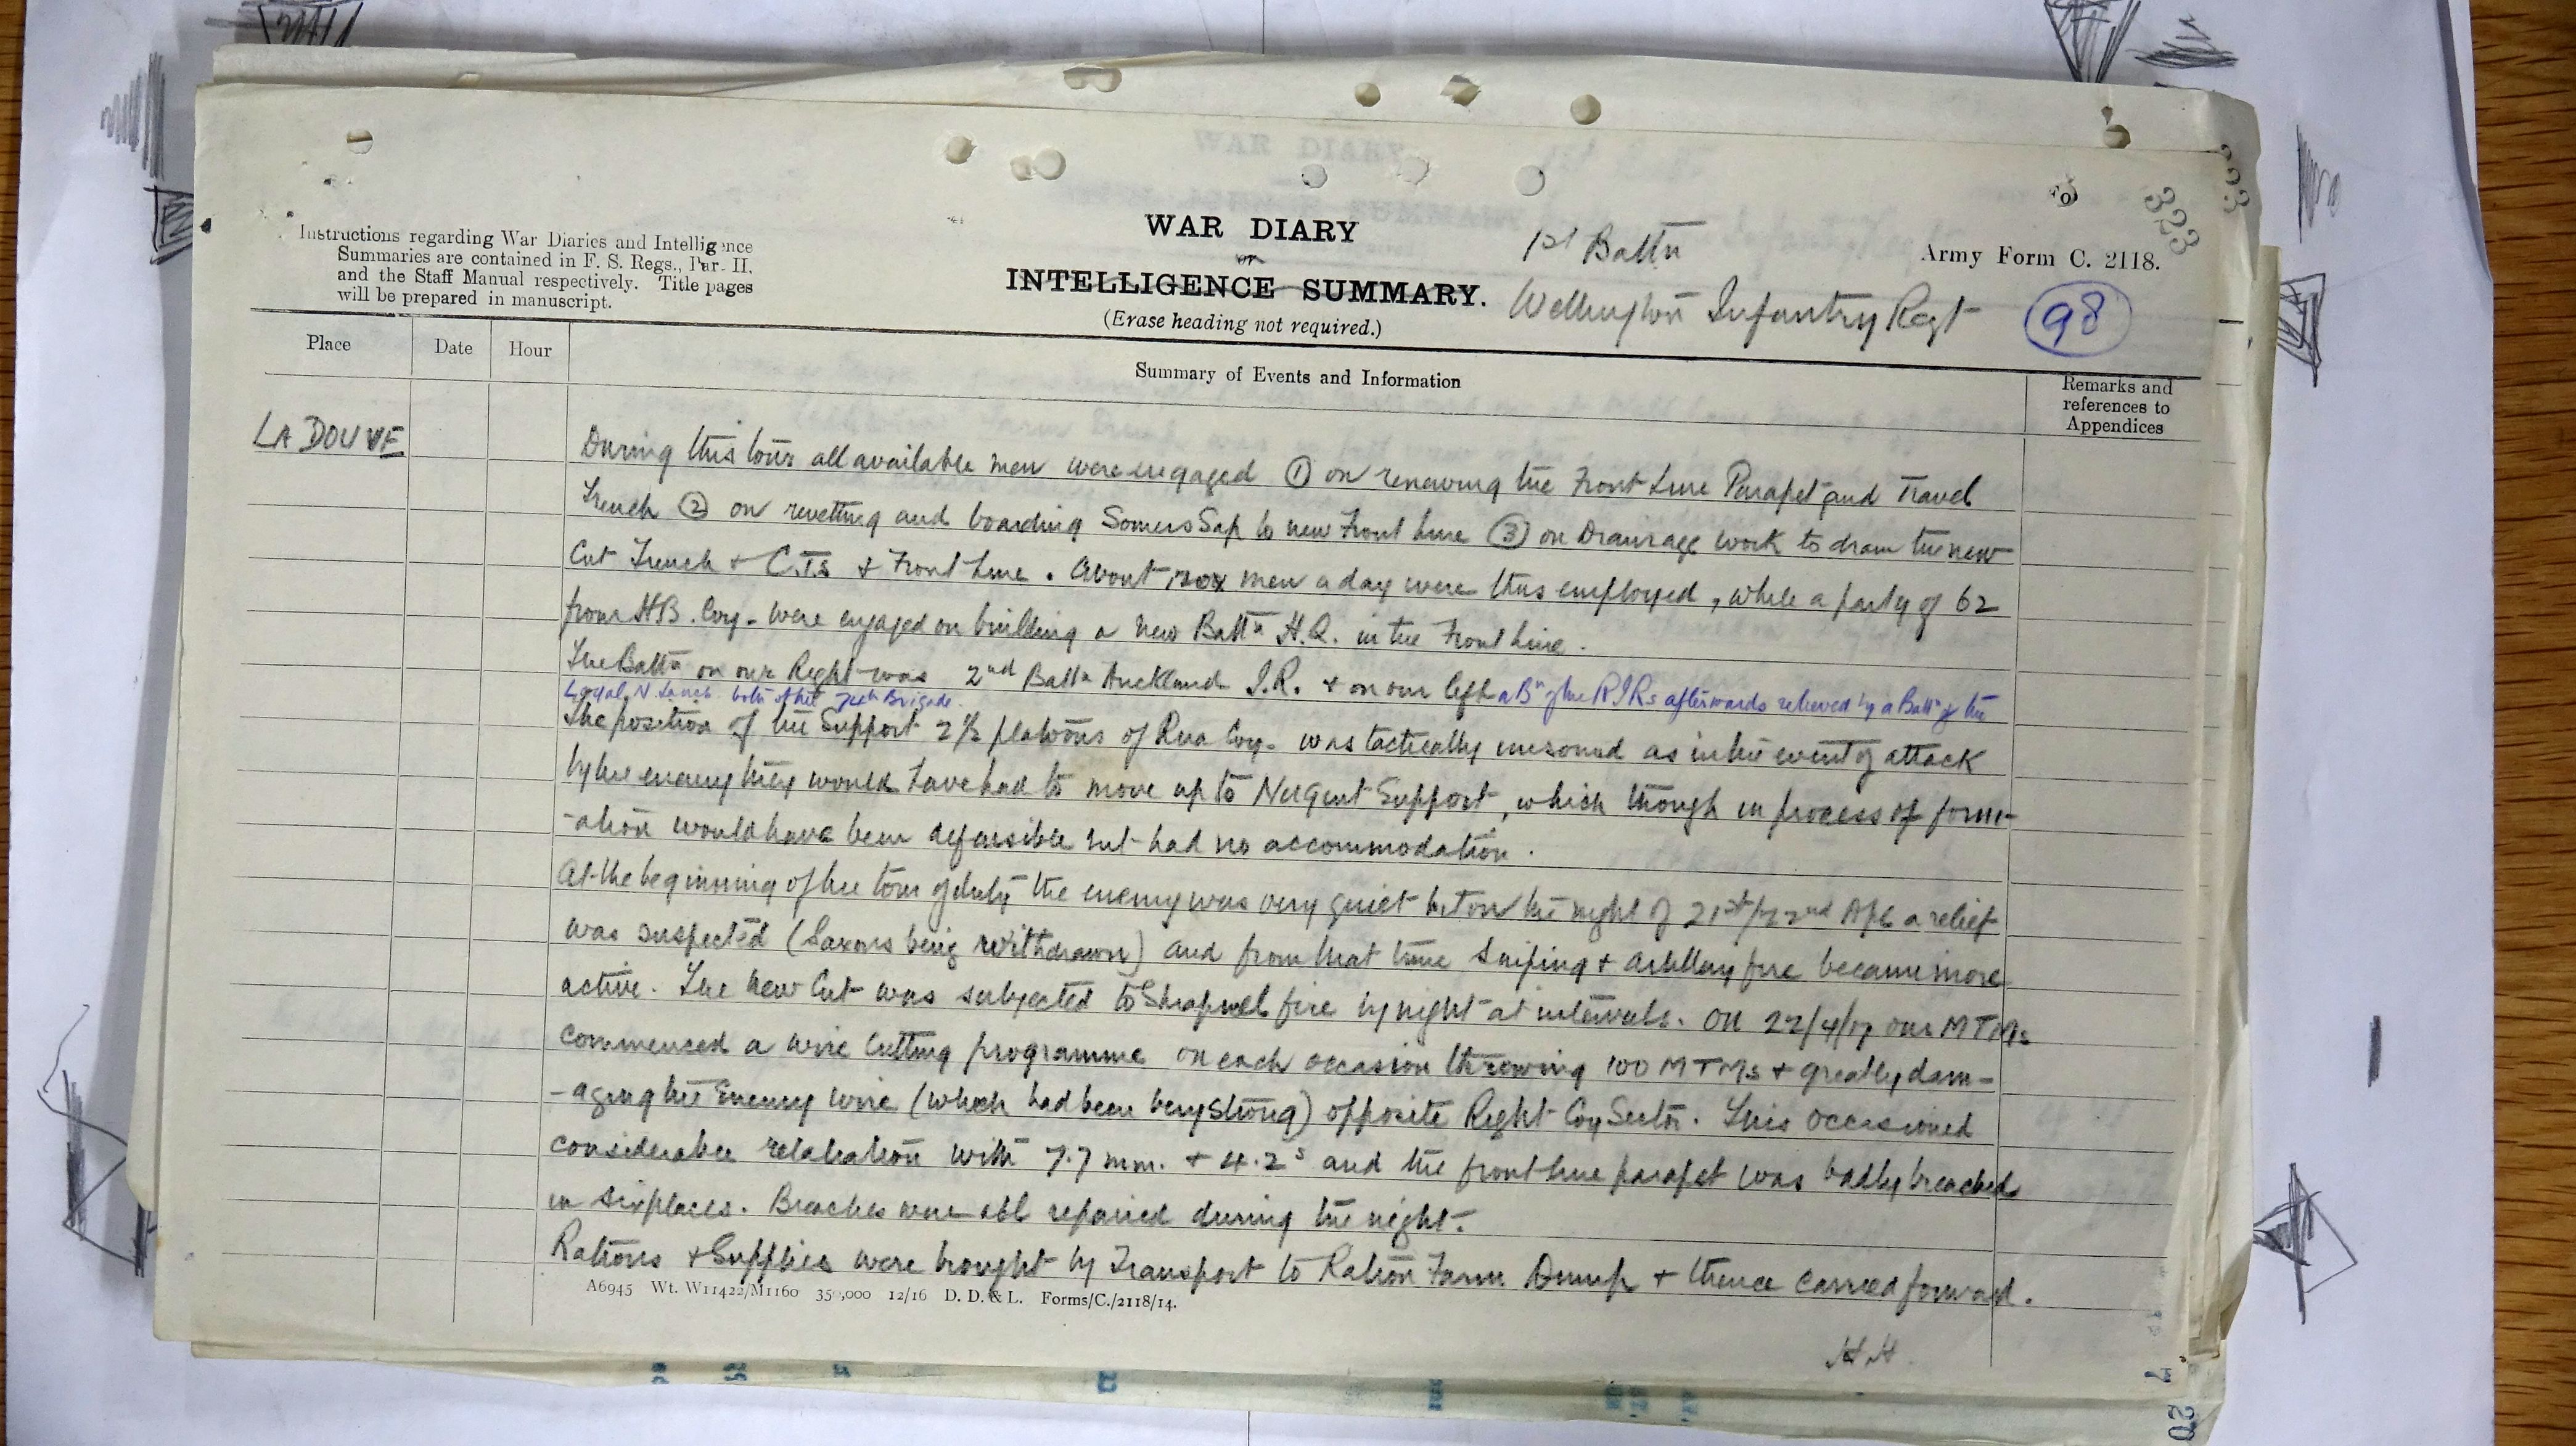 323
WAR DIARY
or
INTELLIGENCE SUMMARY.
(Erase heading not required.)
Instructions regarding War Diaries and Intelligence
Summaries are contained in F. S. Regs., Part II.
and the Staff Manual respectively. Title pages
will be prepared in manuscript.
1st Battn
Wellington Infantry Regt
Army Form C. 2118.
98
Place
Date
Hour
Summary of Events and Information
Remarks and
references to
Appendices
LA DOUVE
During this tour all available men were engaged ① on renewing the Front Line Parapet and Travel
Trench ② on revetting and boarding Somers Sap to new Front Line ③ on Drainage work to drain the new
Cut Trench + C.T.s + Front Line. About men a day were thus employed, while a party of 62
from HB. Coy. were engaged on building a new Battn H.Q. in the Front Line.
The Battn on our Right was 2nd Battn Auckland I.R. + on our left a Bn of the R I Rs afterwards relieved by a Battn of the
Loyal N. Lancs. both of the 74th Brigade.
The position of the Support 2½ platoons of Rua Coy. was tactically unsound as in the event of attack
by the enemy they would have had to move up to Nugent Support, which though in process of form-
-ation would have been defensible but had no accommodation.
At the beginning of the tour of duty the enemy was very quiet but on the night of 21st/22nd Apl a relief
was suspected (Saxons being withdrawn) and from that time Sniping + artillery fire became more
active. The New Cut was subjected to Shrapnel fire by night at intervals. On 22/4/17 our M T Ms
commenced a wire cutting programme on each occasion throwing 100 M T Ms + greatly dam-
-aging the Enemy wire (which had been very strong) opposite Right Coy Sector. This occasioned
considerable retaliation with 7.7 mm. + 4.2s and the front line parapet was badly breached
in six places. Breaches were all repaired during the night.
Rations + Supplies were brought by Transport to Ration Farm Dump + thence carried forward.
A6945 Wt. W11422/M1160 350,000 12/16 D. D. & L. Forms/C./2118/14.
H.H.